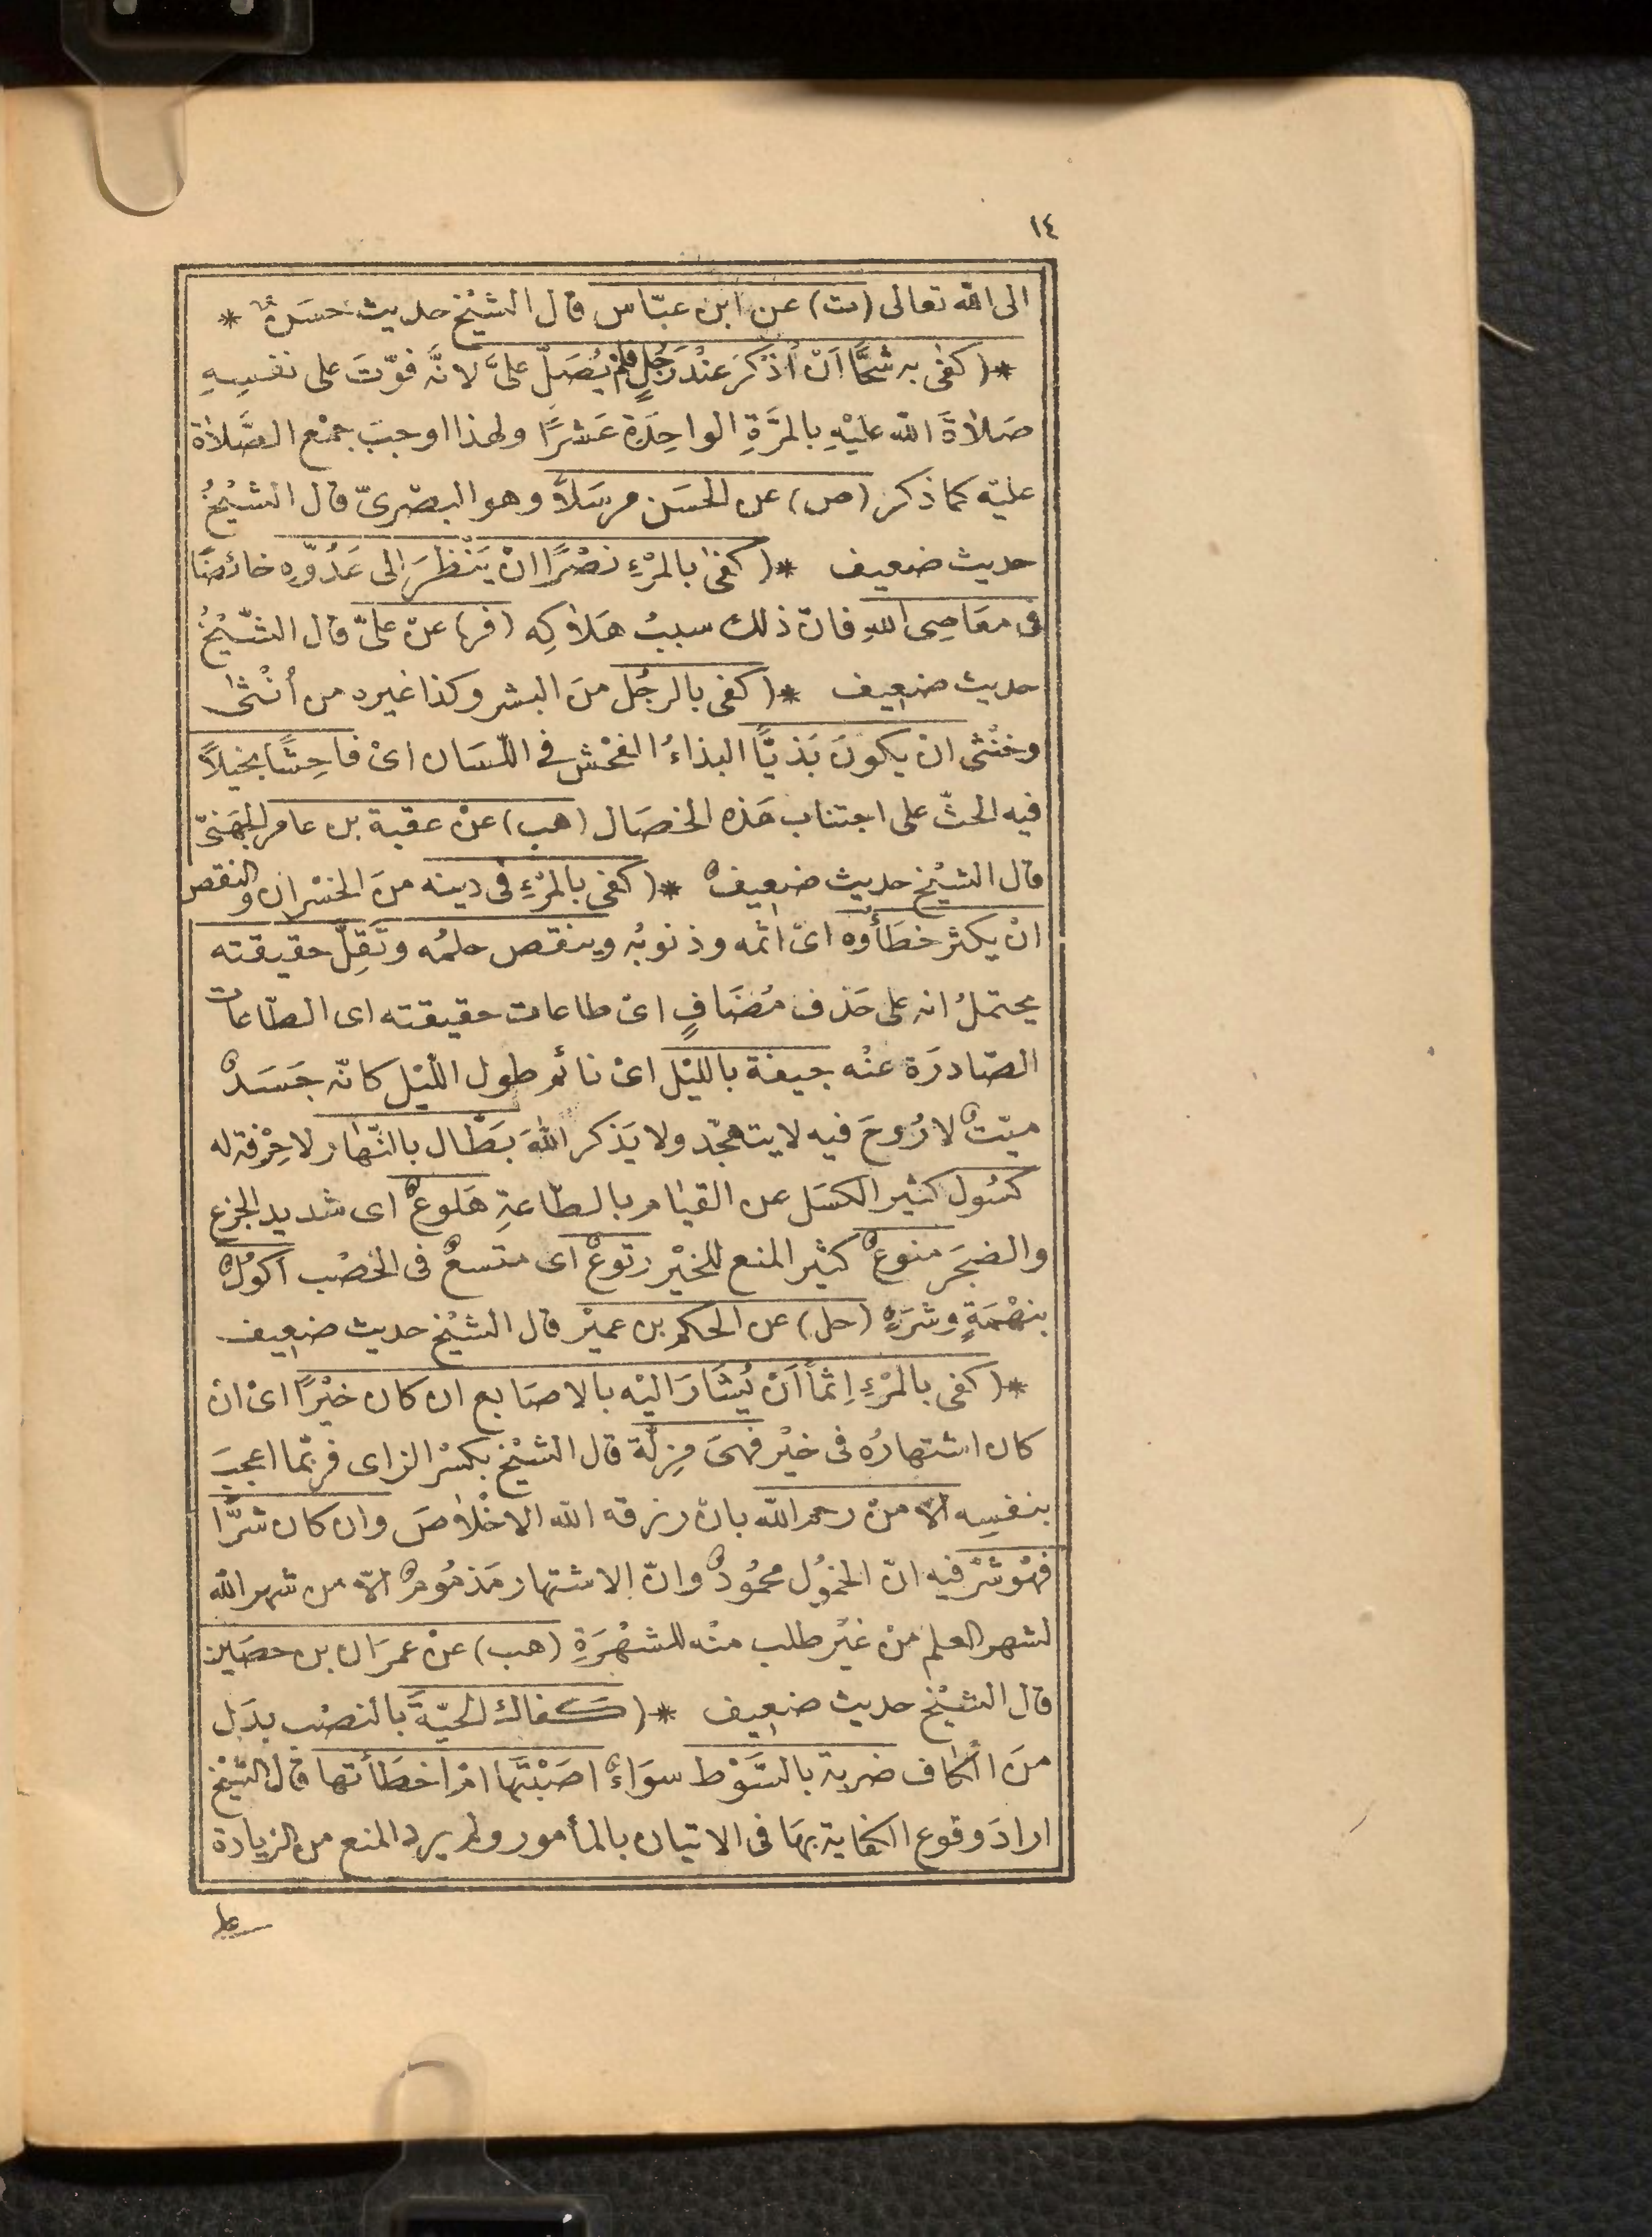 ١٤
الى الله تعالى (ت) عن ابن عبّاس قال الشيْخ حديث حسَنٌ *
*( كفى به شحًّا اَنْ اُذْكَرَ عنْدَ رَجُلٍ فلم يُصَلّ علىَّ لانَّه فوّتَ على نفسِهِ
صَلاٰةَ الله عليْهِ بالمرَّةِ الواحِدَة عَشرًا ولهذا اوجبَ جمْع الصَّلاٰة
عليْه كما ذكر (ص) عن الحسَن مرسَلاً وهو البصْرىّ قال الشيْخُ
حديث ضعيف *( كفىٰ بالمرْءِ نصْرًا انْ يَنْظُرَ اِلى عَدُوِّهِ خائضًا
فى معَاصِى اللهِ فانّ ذلك سببُ هَلاٰكِه (فر) عنْ علىّ قال الشّيْخُ
حديث ضعيف *( كفى بالرجُل منَ البشر وكذا غيره من أنْثىٰ
وخنْثى انْ يكونَ بَذيًّا البذاءُ الفحْش فى اللّسَان اىْ فاحِشًا بخيلاً
فيه الحثّ على اجتناب هَذه الخصَال (هب) عنْ عقبة بن عامر الجهَنىّ
قال الشيْخ حديث ضعيفٌ *( كفى بالمرْءِ فى دينه منَ الخسْران والنقص
انْ يكثر خطَأوُه اىْ اثمه وذنوبُه وينقص حلمُه وتَقِلّ حقيقته
يحتملُ انه على حَذف مُضَافٍ اىْ طاعات حقيقته اى الطّاعات
الصّادرَة عنْه جيفة بالليْل اىْ نائم طول اللّيْل كانّه جَسَدٌ
ميّتٌ لا رُوحَ فيه لا يتهجّد ولا يَذكر اللهَ بَطْال بالنّهَار لا حِرْفة له
كسُول كثير الكسَل عن القيٰام بالطّاعَةِ هَلوعٌ اى شديد الجزع
والضجَر منوعٌ كثيْر المنع للخيْر رتوعْ اى متسعٌ فى الخصْب اكوُلٌ
بنهْمَةٍ وشرَهٍ (حل) عن الحكم بن عميْر قال الشيْخ حديث ضعيف
*( كفى بالمرْءِ اِثماً اَنْ يُشَارَ اليْه بالاصَابع ان كان خيْرًا اىْ انْ
كان اشتهارُه فى خيْر فهىَ مِزلّة قال الشيْخ بكسْر الزاى فربّما اعجبَ
بنفسِه الاّ منْ رحمه الله بانْ رزقه الله الاخْلاٰصَ وان كان شرًّا
فهُوَ شرّ فيه انّ الخموُل محمُودٌ وانّ الاشتهار مَذمُومٌ الاّ من شهره الله
لشهر العلم منْ غيْر طلب منْه للشهْرَةِ (هب) عنْ عمرَان بن حصَين
قال الشيْخ حديث ضعيف *( كفاك الحيّةَ بالنصْب بدَل
منَ الكاف ضربة بالسَّوْط سوَاءٌ اصَبْتَها امْ اخطَأتها قال الشّيْخ
ارادَ وقوع الكفاية بهَا فى الاتيان بالمأمور ولم يرد المنع من الزيادة
على